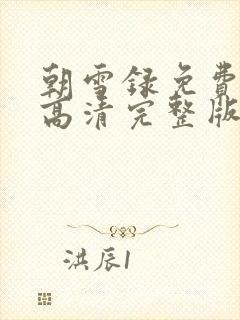 朝雪录免费
高清完整版
洪辰1